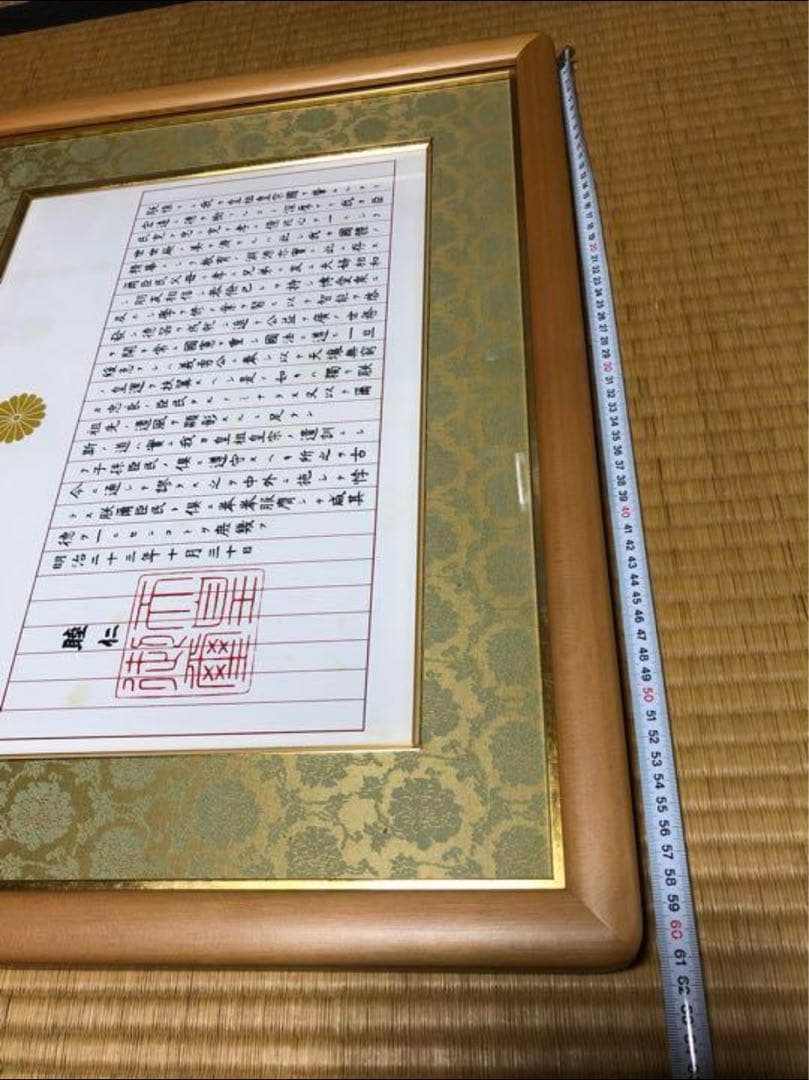 朕惟フニ我カ皇祖皇宗國ヲ肇ムルコト
宏遠ニ德ヲ樹ツルコト深厚ナリ我カ臣
民克ク忠ニ克ク孝ニ億兆心ヲ一ニシテ
世世厥ノ美ヲ濟セルハ此レ我カ國體ノ
精華ニシテ教育ノ淵源亦實ニ此ニ存ス
爾臣民父母ニ孝ニ兄弟ニ友ニ夫婦相和
シ朋友相信シ恭儉己レヲ持シ博愛衆ニ
及ホシ學ヲ修メ業ヲ習ヒ以テ智能ヲ啓
發シ德器ヲ成就シ進テ公益ヲ廣メ世務
ヲ開キ常ニ國憲ヲ重シ國法ニ遵ヒ一旦
緩急アレハ義勇公ニ奉シ以テ天壤無窮
ノ皇運ヲ扶翼スヘシ是ノ如キハ獨リ朕
カ忠良ノ臣民タルノミナラス又以テ爾
祖先ノ遺風ヲ顯彰スルニ足ラン
斯ノ道ハ實ニ我カ皇祖皇宗ノ遺訓ニシ
テ子孫臣民ノ俱ニ遵守スヘキ所之ヲ古
今ニ通シテ謬ラス之ヲ中外ニ施シテ悖
ラス朕爾臣民ト俱ニ拳拳服膺シテ咸其
德ヲ一ニセンコトヲ庶幾フ
明治二十三年十月三十日
睦仁
天皇御璽
20 21 22 23 24 25 26 27 28 29 30 31 32 33 34 35 36 37 38 39 40 41 42 43 44 45 46 47 48 49 50 51 52 53 54 55 56 57 58 59 60 61 62